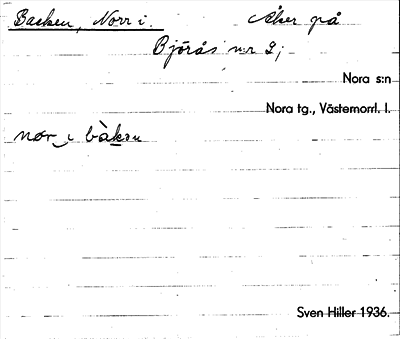 Backen, Norr i. Åker på
Björås nr 2;
Nora s:n
Nora tg., Västernorrl. l.
nor i bàkan
Sven Hiller 1936.